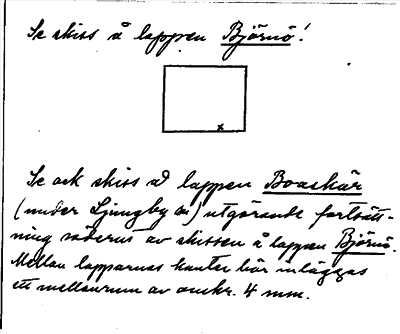 Se skiss å lappen Björnö!
x
Se ock skiss å lappen Boaskär
(under Ljungby sn) utgörande fortsätt-
ning söderut av skissen å lappen Björnö.
Mellan lapparnas kanter bör inläggas
ett mellanrum av omkr. 4 mm.